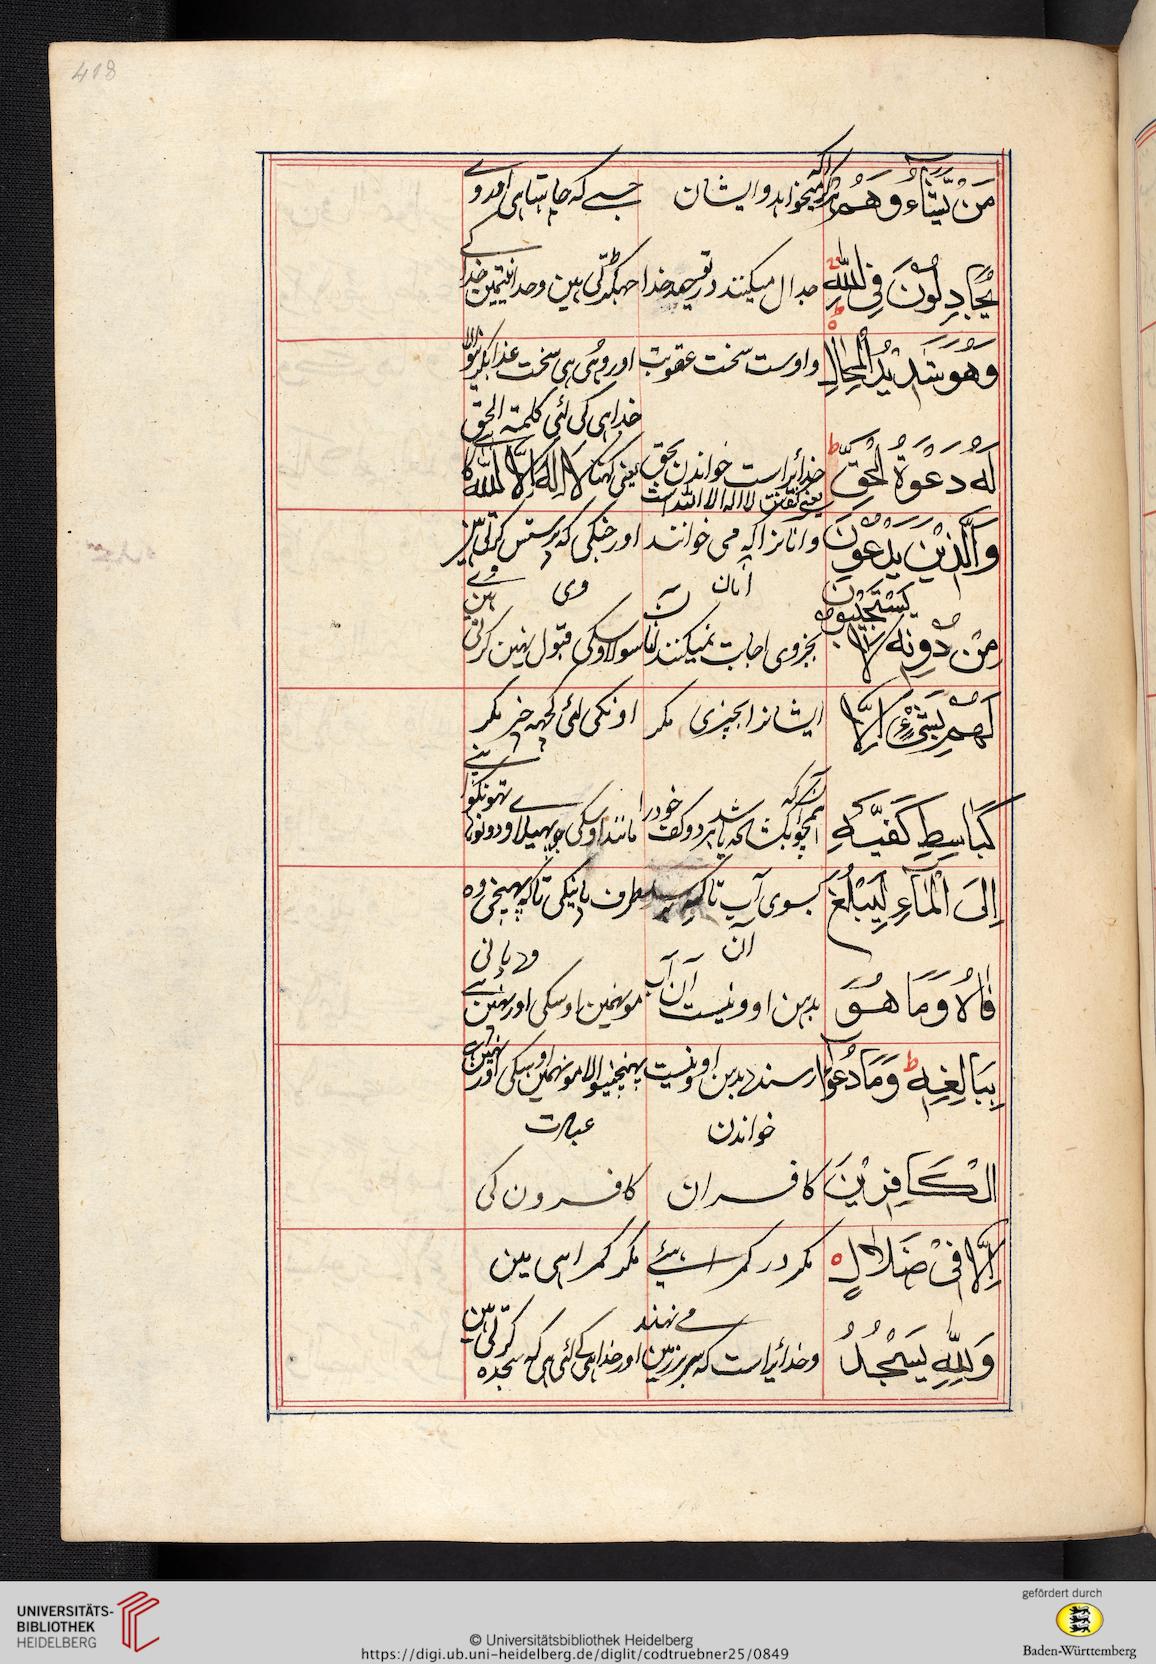 418
مَنْ يَّشَآءُ وَهُمْ هرکرا که میخواهد و ایشان جسے که چاہتا ہی اور وے
يُجَادِلُوْنَ فِي اللّٰهِ جدال میکنند در توحید خدا جهگڑتی ہین وحدانیتمین خدا کے
وَهُوَ شَدِيْدُ الْمِحَالِ و اوست سخت عقوبت اور وُہی ہی سخت عذاب کرنیوالا
لَهٗ دَعْوَةُ الْحَقِّ خدایراست خواندن بحق یعنے گفتن لا اله الا الله است خدا ہی کی لئی کلمة الحق یعنی کہنا لا اله الا الله کا
وَالَّذِيْنَ يَدْعُوْنَ و انانرا که می خوانند اور جنکی که پرستش کرتی ہین
مِنْ دُوْنِهٖ لَا يَسْتَجِيْبُوْنَ بجز وی اجابت نمیکنند آنان سوا اوسکی قبول نہین کرتی وے ہین
لَهُمْ بِشَيْءٍ اِلَّا ایشانرا بچیزی مکر اونکی لئی کچهه خبر مکر
كَبَاسِطِ كَفَّيْهِ همچو آنکه بکشاید هر دو کف خود را مانند اوسکی جو پہیلاے دونو ہاتهونکو اپنے
اِلَى الْمَآءِ لِيَبْلُغَ بسوی آب تا که برسد آن طرف پانیکی تا که پہنچی وه
فَاهُ وَمَا هُوَ بدهن او و نیست آن آب مونہمین اوسکی اور نہین ہے وه پانی
بِبَالِغِهٖ وَمَا دُعَآءُ رسنده بدهن او و نیست پہنچنیوالا مونہمین اوسکی اور نہین ہے
الْكَافِرِيْنَ خواندن کافران عبادت کافرون کی
اِلَّا فِيْ ضَلَالٍ مکر در کمراہیئے مکر کمراہی مین
وَلِلّٰهِ يَسْجُدُ و خدایراست که سر بر زمین مے نهند اور خدا ہی کے لئی ہی که سجده کرتی ہین
UNIVERSITÄTS-
BIBLIOTHEK
HEIDELBERG
© Universitätsbibliothek Heidelberg
https://digi.ub.uni-heidelberg.de/diglit/codtruebner25/0849
gefördert durch
Baden-Württemberg